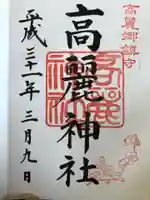 高麗郷鎮守
高麗神社
平成三十一年三月九日